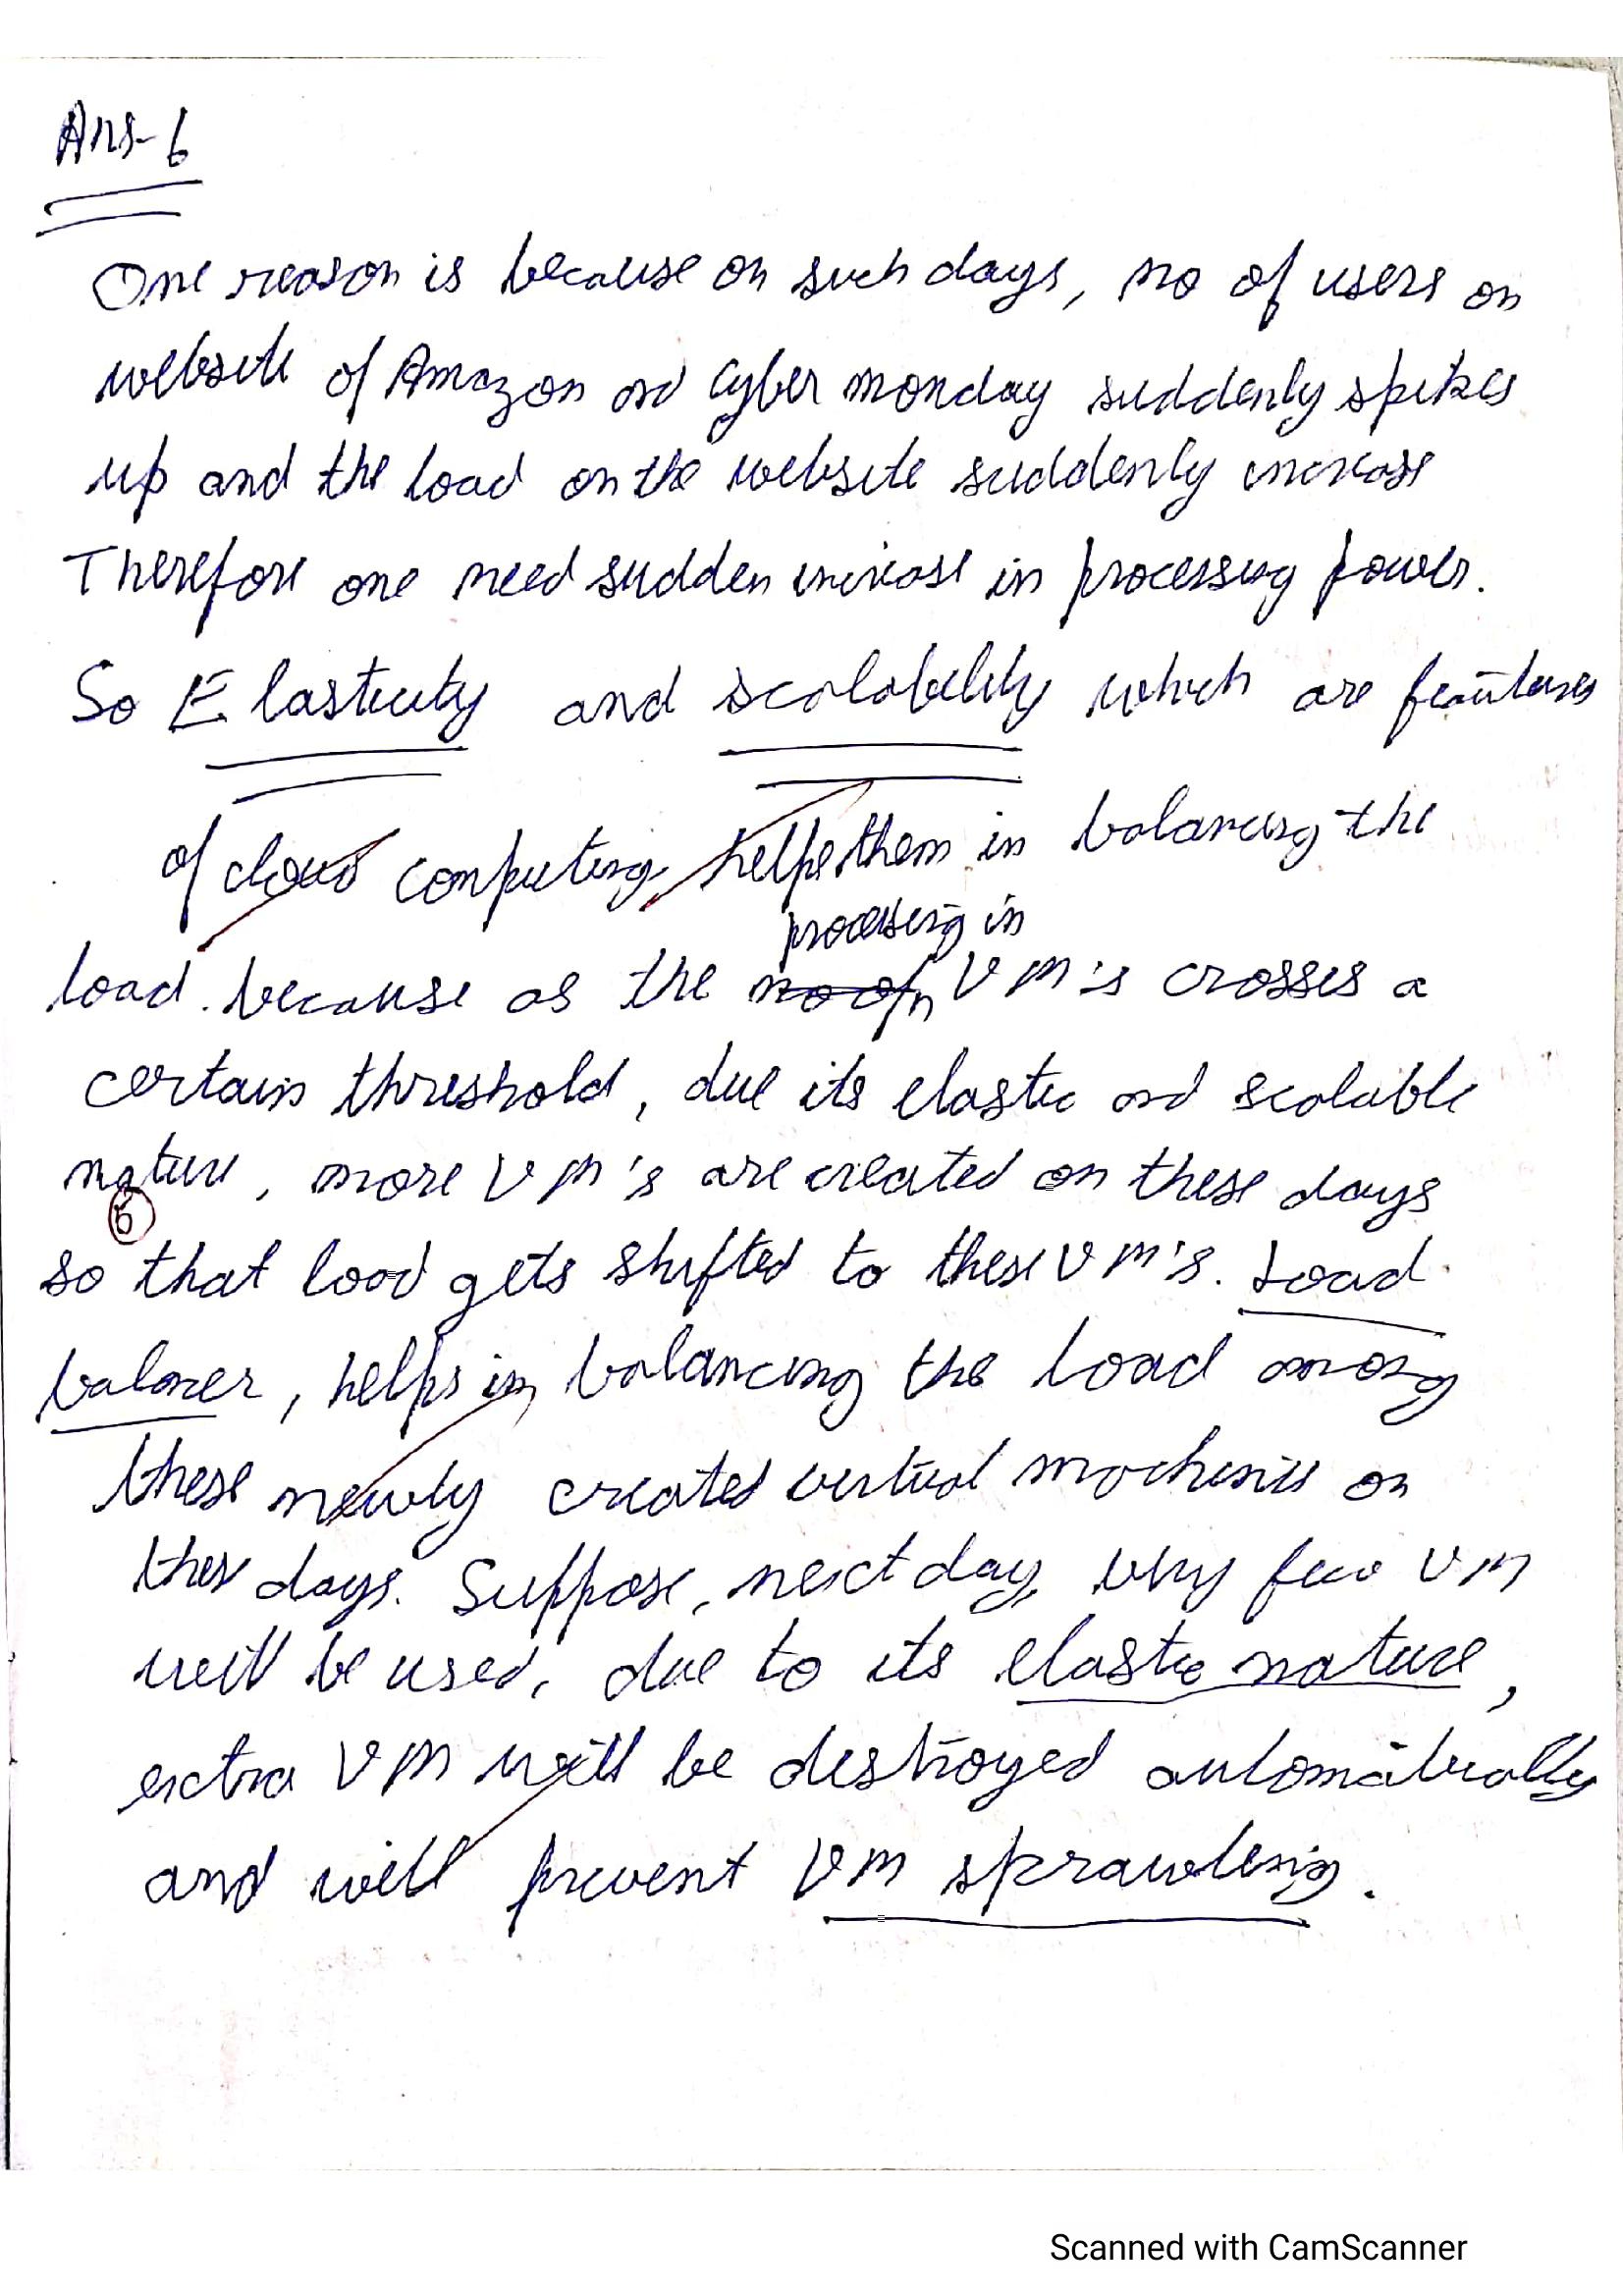 Ans-6
One reason is because on such days, no of users on
website of Amazon and Cyber monday suddenly spikes
up and the load on the website suddenly increase
Therefore one need sudden increase in processing power.
So Elasticity and scalability which are features
of cloud computing, helps them in balancing the
processing in
load. because as the no of VM's crosses a
certain threshold, due its elastic and scalable
nature, more VM's are created on these days
5
so that load gets shifted to these VM's. Load
balancer, helps in balancing the load among
these newly created virtual machines on
these days. Suppose, next day, very few VM
will be used, due to its elastic nature,
extra VM will be destroyed automatically
and will prevent VM sprawling.
Scanned with CamScanner